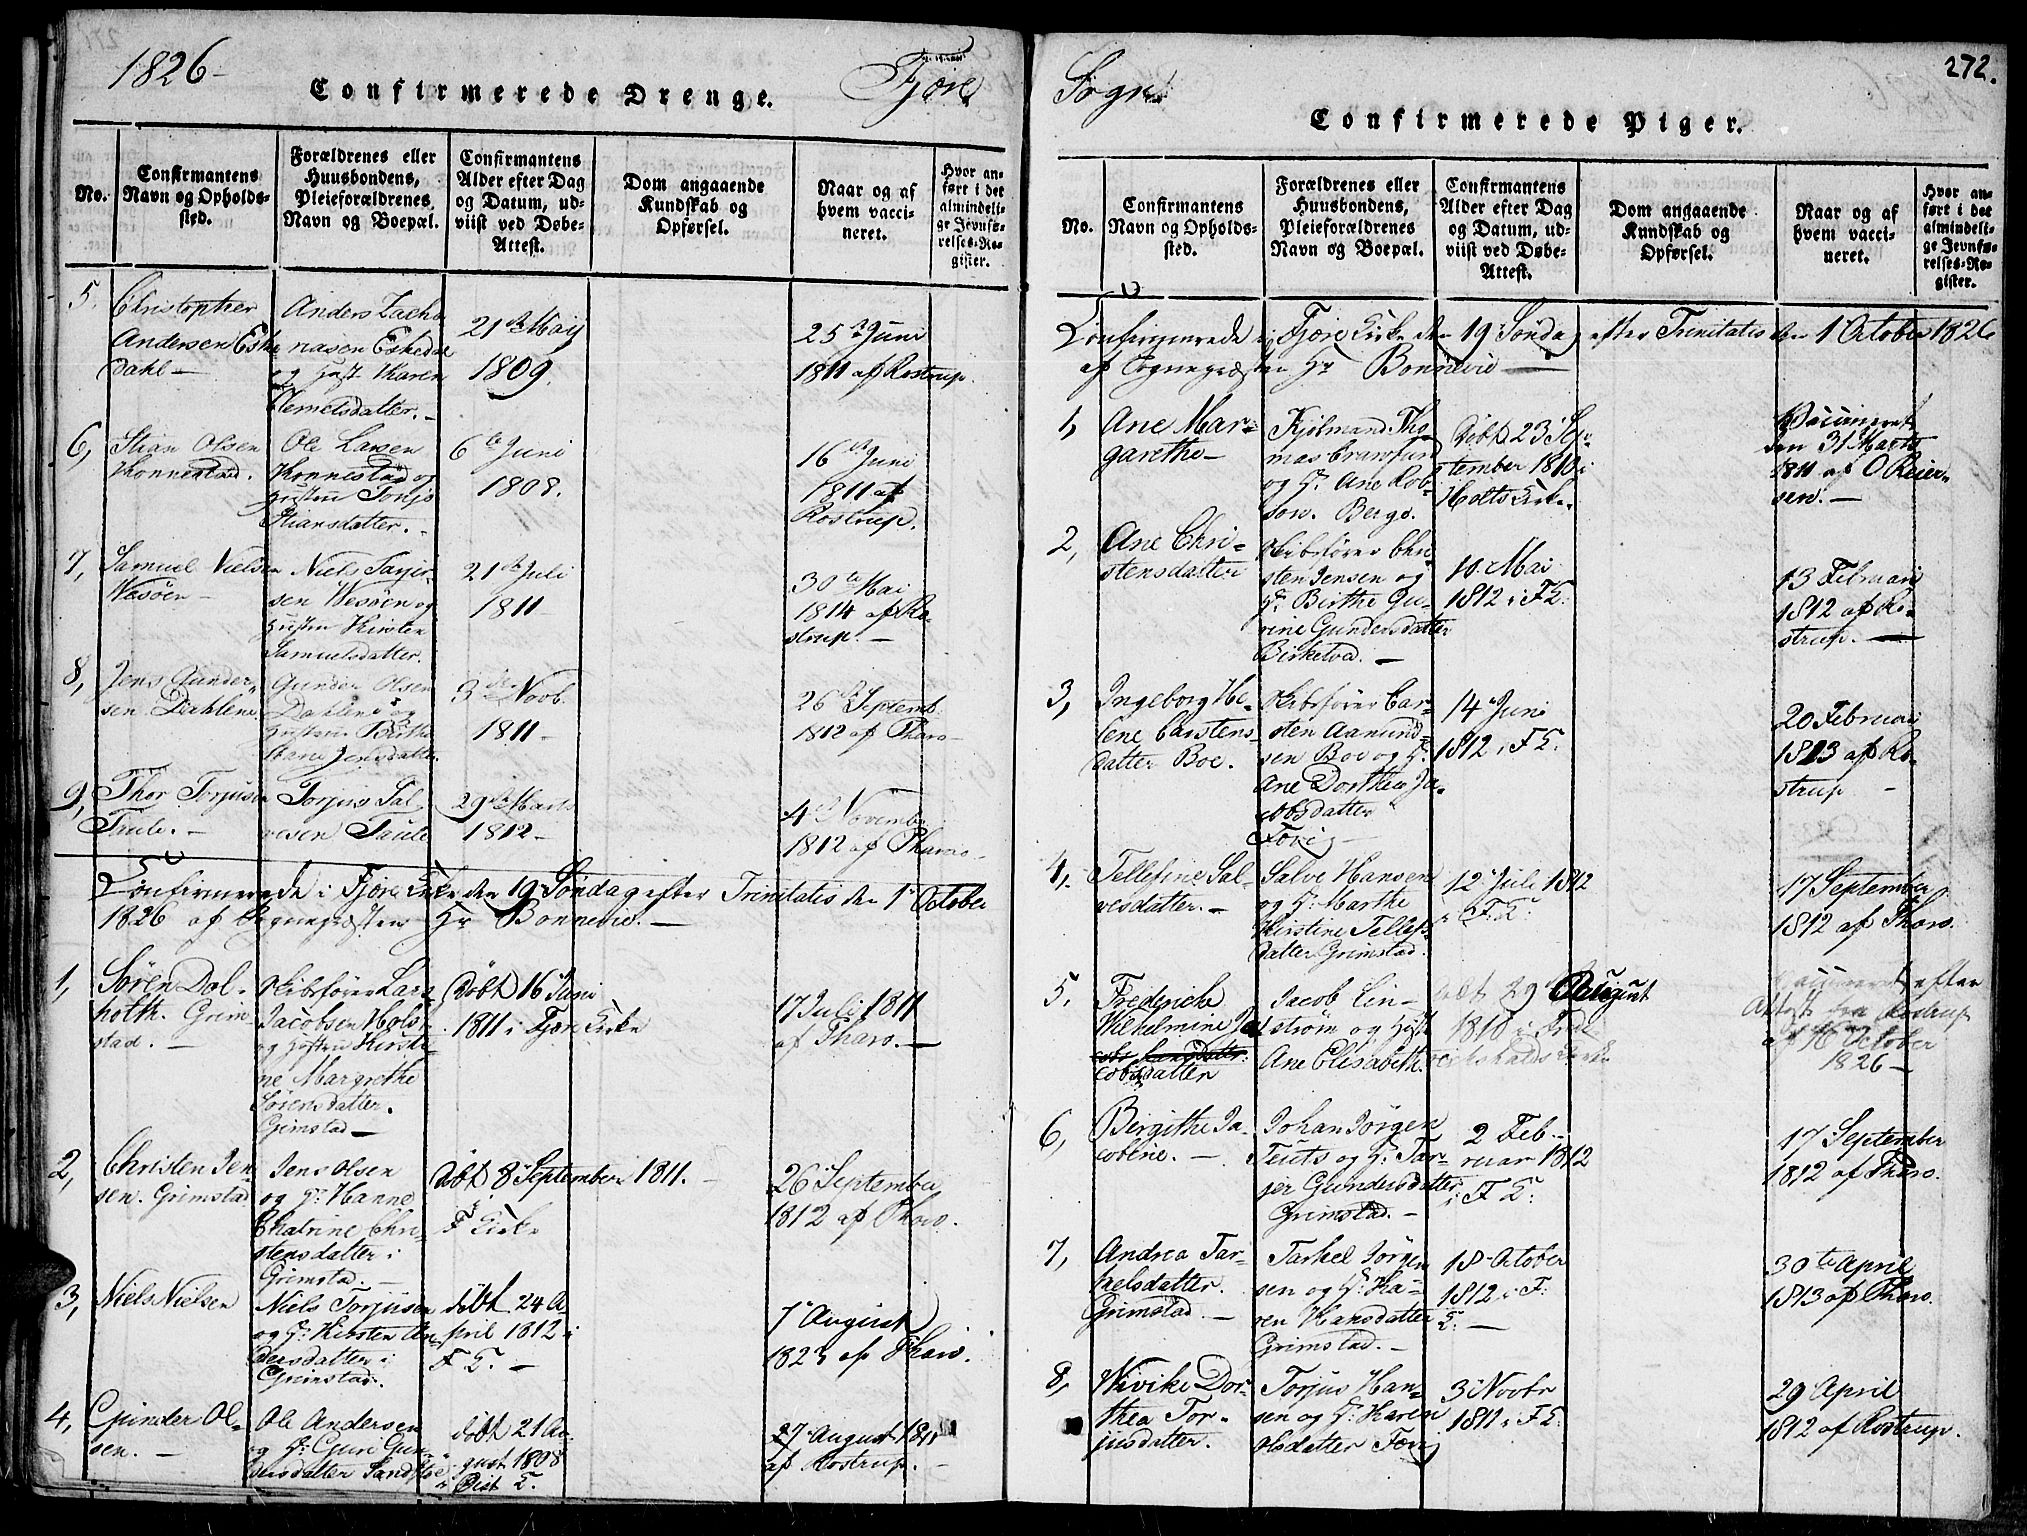 1826
Fjære
Confirmerede Drenge.
No.
Confirmantens
Navn og Opholds-
sted.
Forældrenes eller
Huusbondens,
Pleieforældrenes
Navn og Boepæl.
Confirmantens
Alder efter Dag
og Datum, ud-
viist ved Døbe-
Attest.
Dom angaaende
Kundskab og
Opførsel.
Naar og af
hvem vacci-
neret.
Hvor an-
ført i det
almindeli-
ge Jevnfø-
relses-Re-
gister.
5.
Christopher
Andersen Eske
dahl -
Anders Zacha
riasen Eskedal
og Hust. Karen
Clemetsdatter. -
21de Maij
1809.
25de Juni
1811 af Rostrup.
6,
Stian Olsen
Konnestad.
Ole Larsen
Konnestad og
Hustru Torjo
Stiansdatter. -
6te Juni
1808.
16de Juni
1811 af
Rostrup.
7,
Samuel Nielsen
Wesøen -
Niels Tarjer
sen Wesøen og
Hustru Kirsten
Samuelsdatter.
21de Juli
1811
30te Mai
1814 af Ro-
strup. -
8,
Jens Gunder-
sen Dahlene
Gunder Olsen
Dahlene og
Hustru Birthe
Marie Jensdatter.
3de Novb.
1811 -
26de Septemb.
1812 af Tharo -
9,
Thor Torjusen
Taule. -
Torjus Sal-
vesen Taule
29de Marts
1812 -
4de Novembr
1812 af Tharo -
Confirmerede i Fjære Kirke den 19 Søndag efter Trinitatis den 1 October
1826 af Sognepræsten Hr Bonnevie. -
1,
Søren Dal-
holth. Grim-
stad. -
Skibsfører Lars
Jacobsen Holst
og Hustru Kirsti-
ne Margrethe
Sørensdatter.
Grimstad -
Døbt 16 Juni
1811 i Fjære Kirke
17 Juli 1811
af Tharo. -
2,
Christen Jen-
sen. Grimstad
Jens Olsen
og H: Hanne
Chatrine Chri-
stensdatter i
Grimstad. -
Døbt 8 September 1811. -
i F Kirke
26 September
1812 af Tharo.
3,
Niels Nielsen
Niels Torjusen
og H: Kirsten An-
dersdatter i
Grimstad.
døbt 24 A-
pril 1812 i
F K. -
7 August
1823 af Tharo.
4,
Gunder Ol-
sen. -
Ole Andersen
og H: Guri Gun-
dersdatter
døbt 21 Au-
gust 1808
i Øiest. K.
27 August 1811
af Rostrup. -
272.
Sogn
Confirmerede Piger.
No.
Confirmantens
Navn og Opholds-
sted.
Forældrenes eller
Huusbondens,
Pleieforældrenes
Navn og Boepæl.
Confirmantens
Alder efter Dag
og Datum, ud-
viist ved Døbe-
Attest.
Dom angaaende
Kundskab og
Opførsel.
Naar og af
hvem vacci-
neret.
Hvor an-
ført i det
almindeli-
ge Jevnfø-
relses-Re-
gister.
Confirmerede i Fjære Kirke den 19 Søndag efter Trinitatis den 1 October 1826
af Sognepræsten Hr Bonnevie -
1,
Ane Mar-
garethe -
Kjøbmand Tho-
mas Crawfurd
og H: Ane Rob-
son. Berge.
Døbt 23 Sep-
tember 1810 i
Holts Kirke.
Vaccineret
den 31 Marts
1811 af O Reier-
sen. -
2,
Ane Chri-
stensdatter
Skibsfører Chri-
sten Jensen og
H: Birthe Gu-
rine Gundersdatter
Birketvd. -
10 Mai
1812 i F K:
13 Februari
1812 af Ro-
strup. -
3,
Ingeborg He-
lene Carstens-
datter Boe.
Skibsfører Car-
sten Aamund-
sen Boe og H:
Ane Dorthea Ja-
cobsdatter
Fævig -
14 Juni
1812 i F K:
20 Februari
1813 af Ro-
strup -
4,
Tellefine Sal-
vesdatter. -
Salve Hansen
og H: Marthe
Kirstine Tellefs
datter Grimstad.
12 Juli 1812
i F. K:
17 September
1812 af Tharo.
5.
Frederiche
Wilhelmine Ja
cobsdatter
Jacob Lin-
strøm og Hust
Ane Elisabeth.
døbt 29 August
1810 i Frede-
richshalds Kirke
Vaccineret efter
Attest fra Rostrup
af 16 October
1826 -
6,
Bergithe Ja-
cobine. -
Johan Jörgen
Teuts og H: Tar-
jer Gundersdatter
Grimstad. -
2 Feb-
ruar 1812
i F K:
17 September
1812 af Tharo.
7,
Andrea Tar-
kelsdatter.
Grimstad. -
Tarkel Jörgen
sen og H: Ka-
ren Hansdatter
Grimstad. -
18 October
1812 i F:
K: -
30te April
1813 af Tharo.
8,
Wivike Dor-
thea Tor-
jusdatter.
Torjus Han-
sen og H: Karen
Olsdatter Fævig
3 Novbr
1811 i F K:
29 April
1812 af Rostrup.